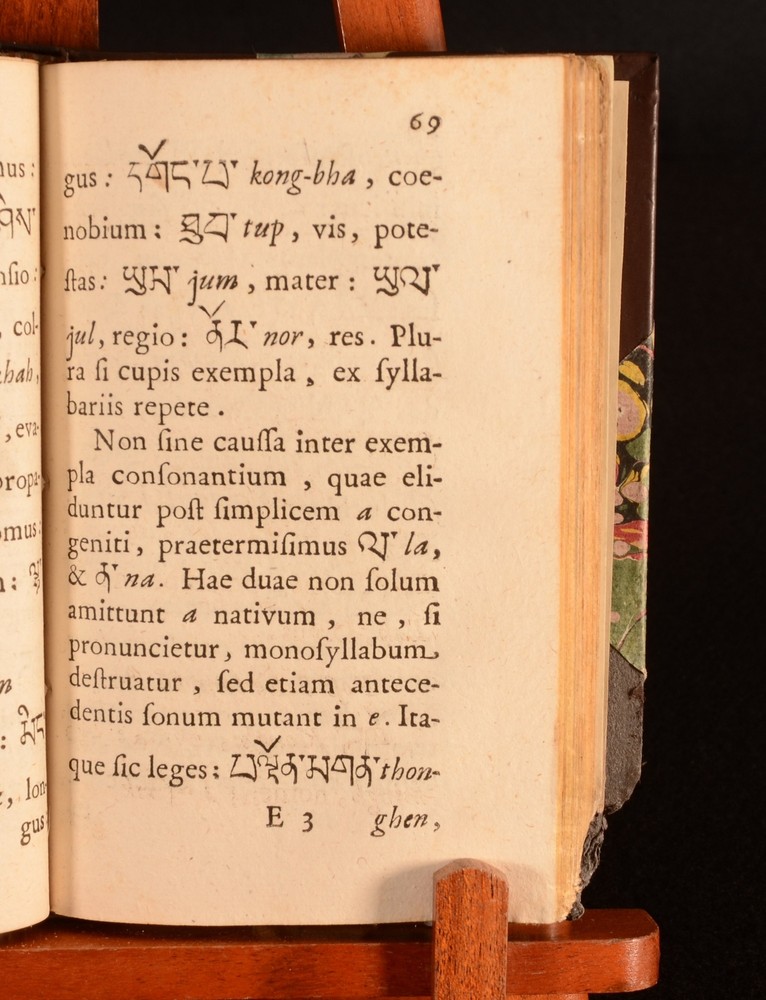 69
gus: དགོང་པ་ kong-bha, coe-
nobium: ཐུབ་ tup, vis, pote-
ſtas: ཡུམ་ jum, mater: ཡུལ་
jul, regio: ནོར་ nor, res. Plu-
ra ſi cupis exempla, ex ſylla-
bariis repete.
Non ſine cauſſa inter exem-
pla conſonantium, quae eli-
duntur poſt ſimplicem a con-
geniti, praetermiſimus ལ་ la,
& ན་ na. Hae duae non ſolum
amittunt a nativum, ne, ſi
pronuncietur, monoſyllabum
deſtruatur, ſed etiam antece-
dentis ſonum mutant in e. Ita-
que ſic leges: thon-
E 3 ghen,
nus:
nſio:
, col-
khah,
, eva-
propa-
omus:
n:
, lon-
gus